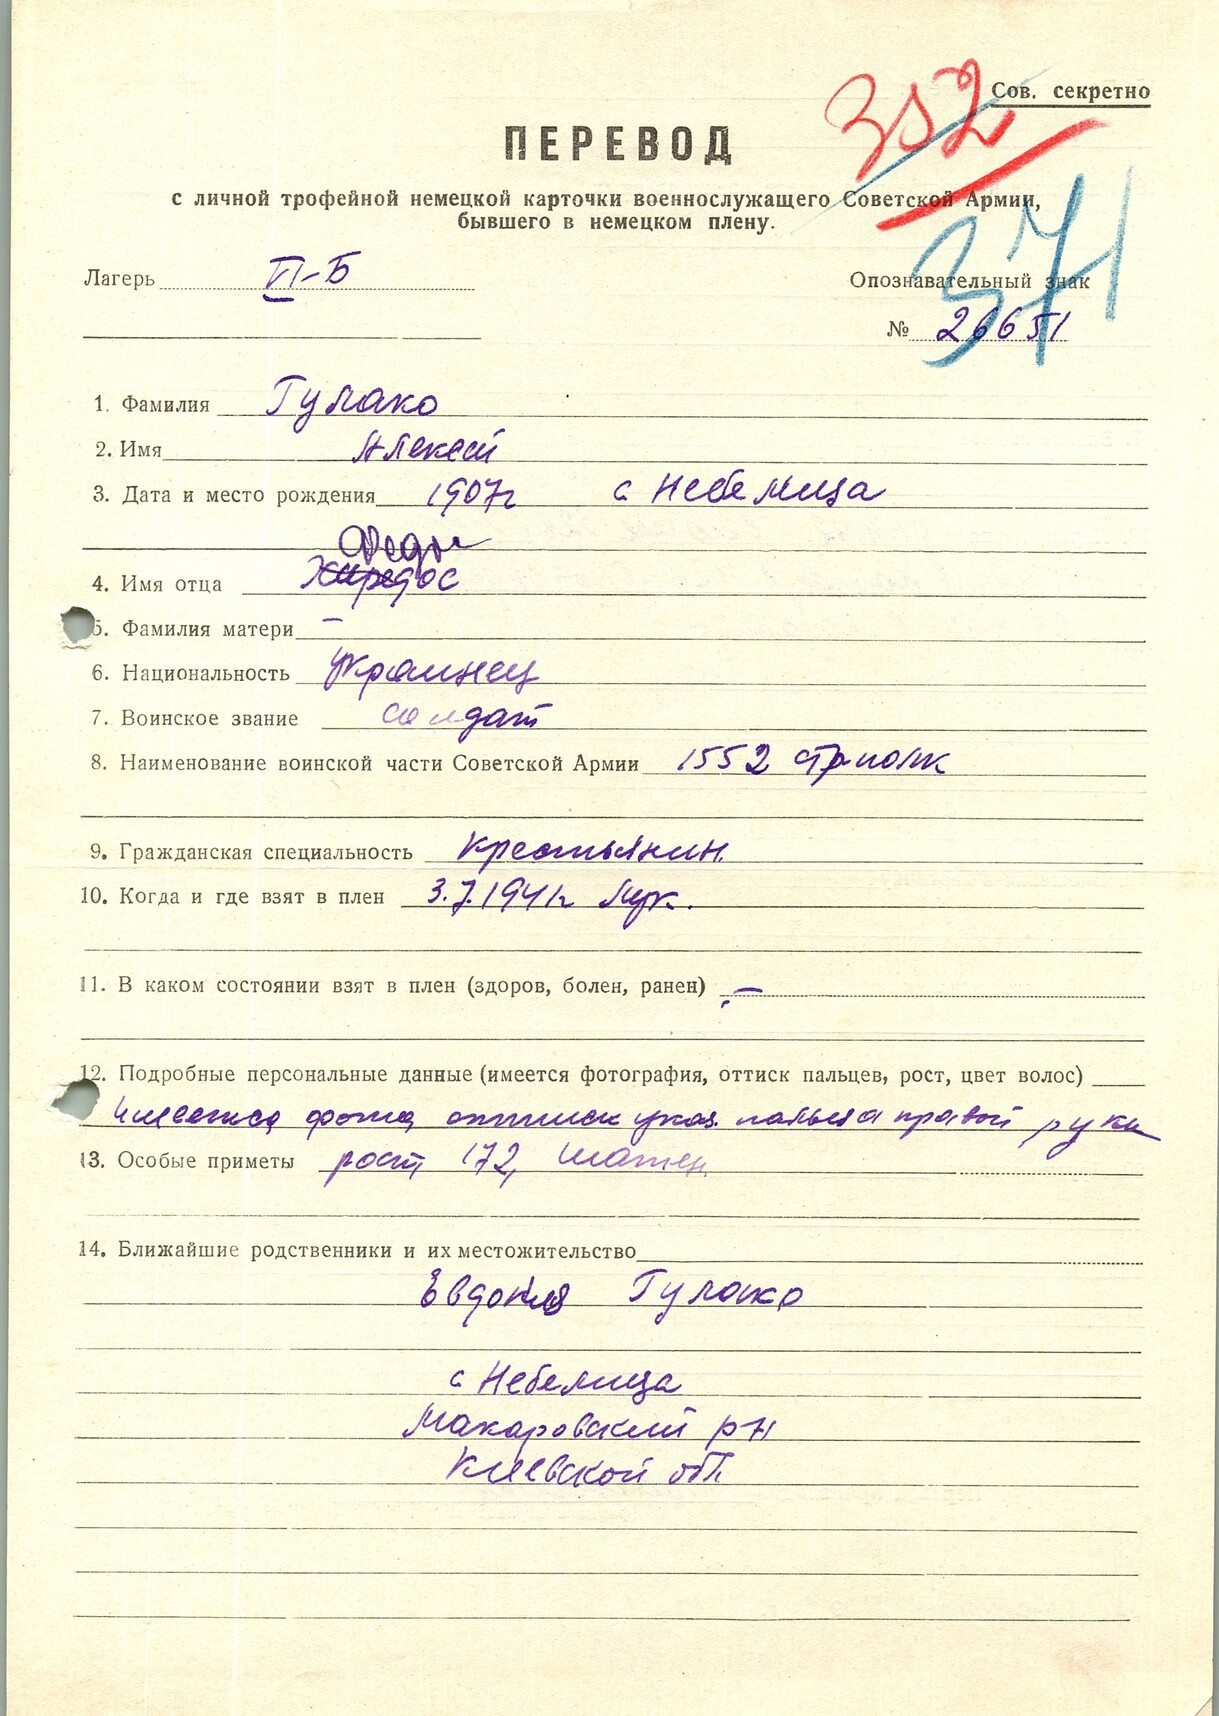 352
Сов. секретно
ПЕРЕВОД
с личной трофейной немецкой карточки военнослужащего Советской Армии,
бывшего в немецком плену.
371
Лагерь VI-Б
Опознавательный знак
№ 26651
1. Фамилия Гулако
2. Имя Алексей
3. Дата и место рождения 1907г с Небелица
4. Имя отца
5. Фамилия матери –
6. Национальность Украинец
7. Воинское звание солдат
8. Наименование воинской части Советской Армии 1552 стр полк
9. Гражданская специальность Крестьянин.
10. Когда и где взят в плен 3.7.1941г
11. В каком состоянии взят в плен (здоров, болен, ранен) –
12. Подробные персональные данные (имеется фотография, оттиск пальцев, рост, цвет волос)
имеется фото, оттиск указ. пальца правой руки
13. Особые приметы рост 172, шатен.
14. Ближайшие родственники и их местожительство
Евдокия Гулако
с Небелица
Макаровский р-н
Киевской обл.